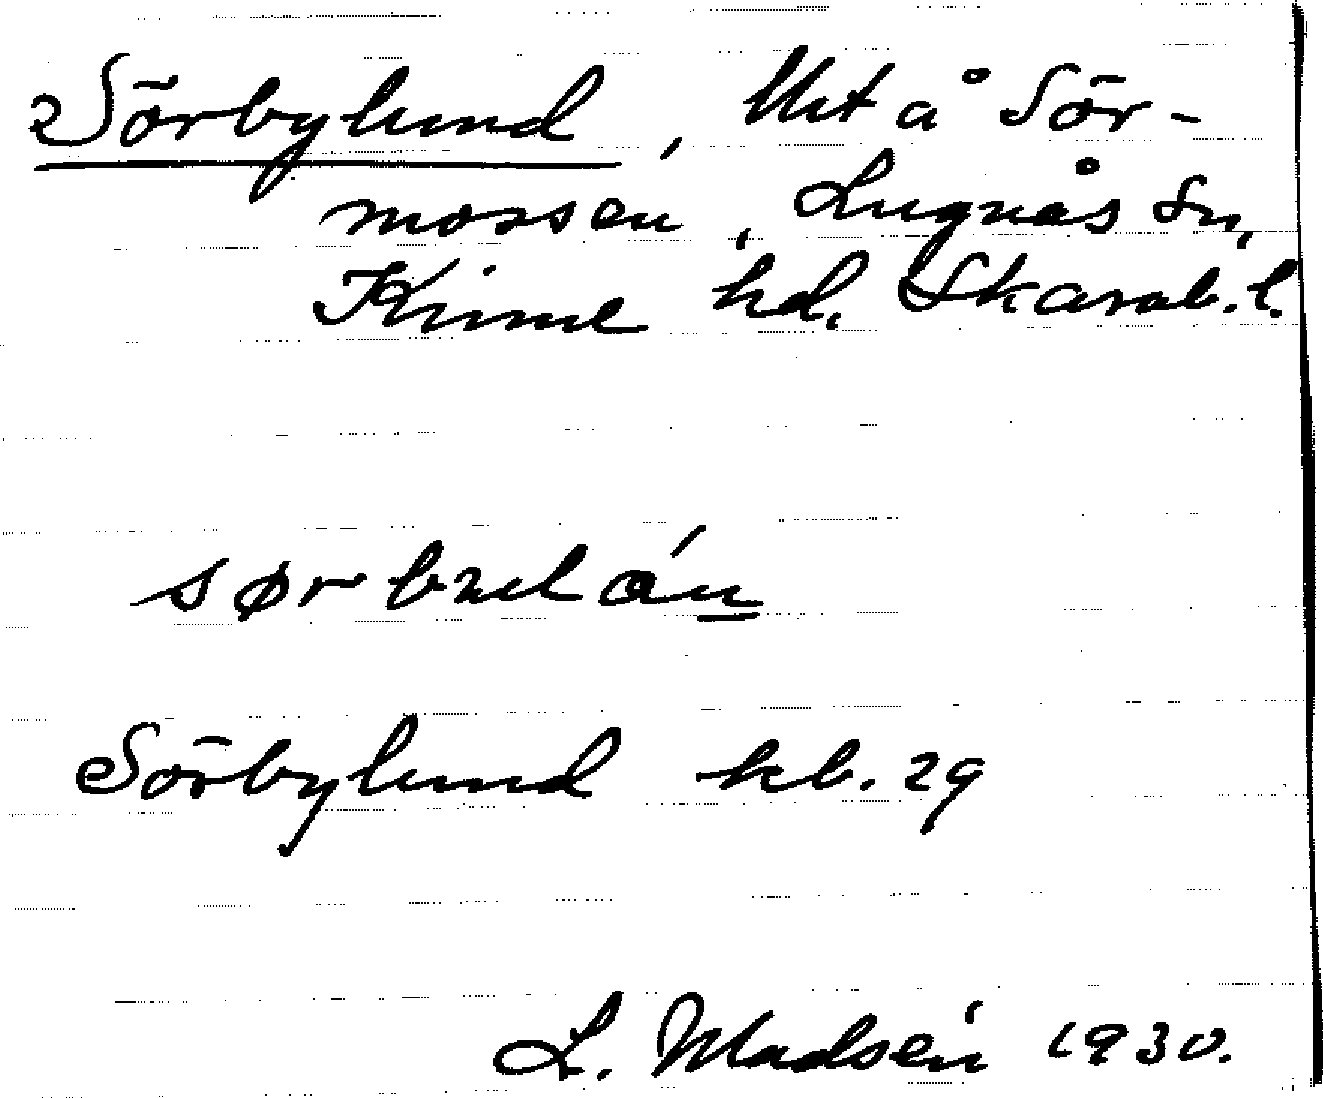 Sörbylund, Utt å Sör-
mossen, Lugnås sn,
Kinne hd, Skarab. l.
sørbu
Sörbylund kb. 29
L. Madsén 1930.